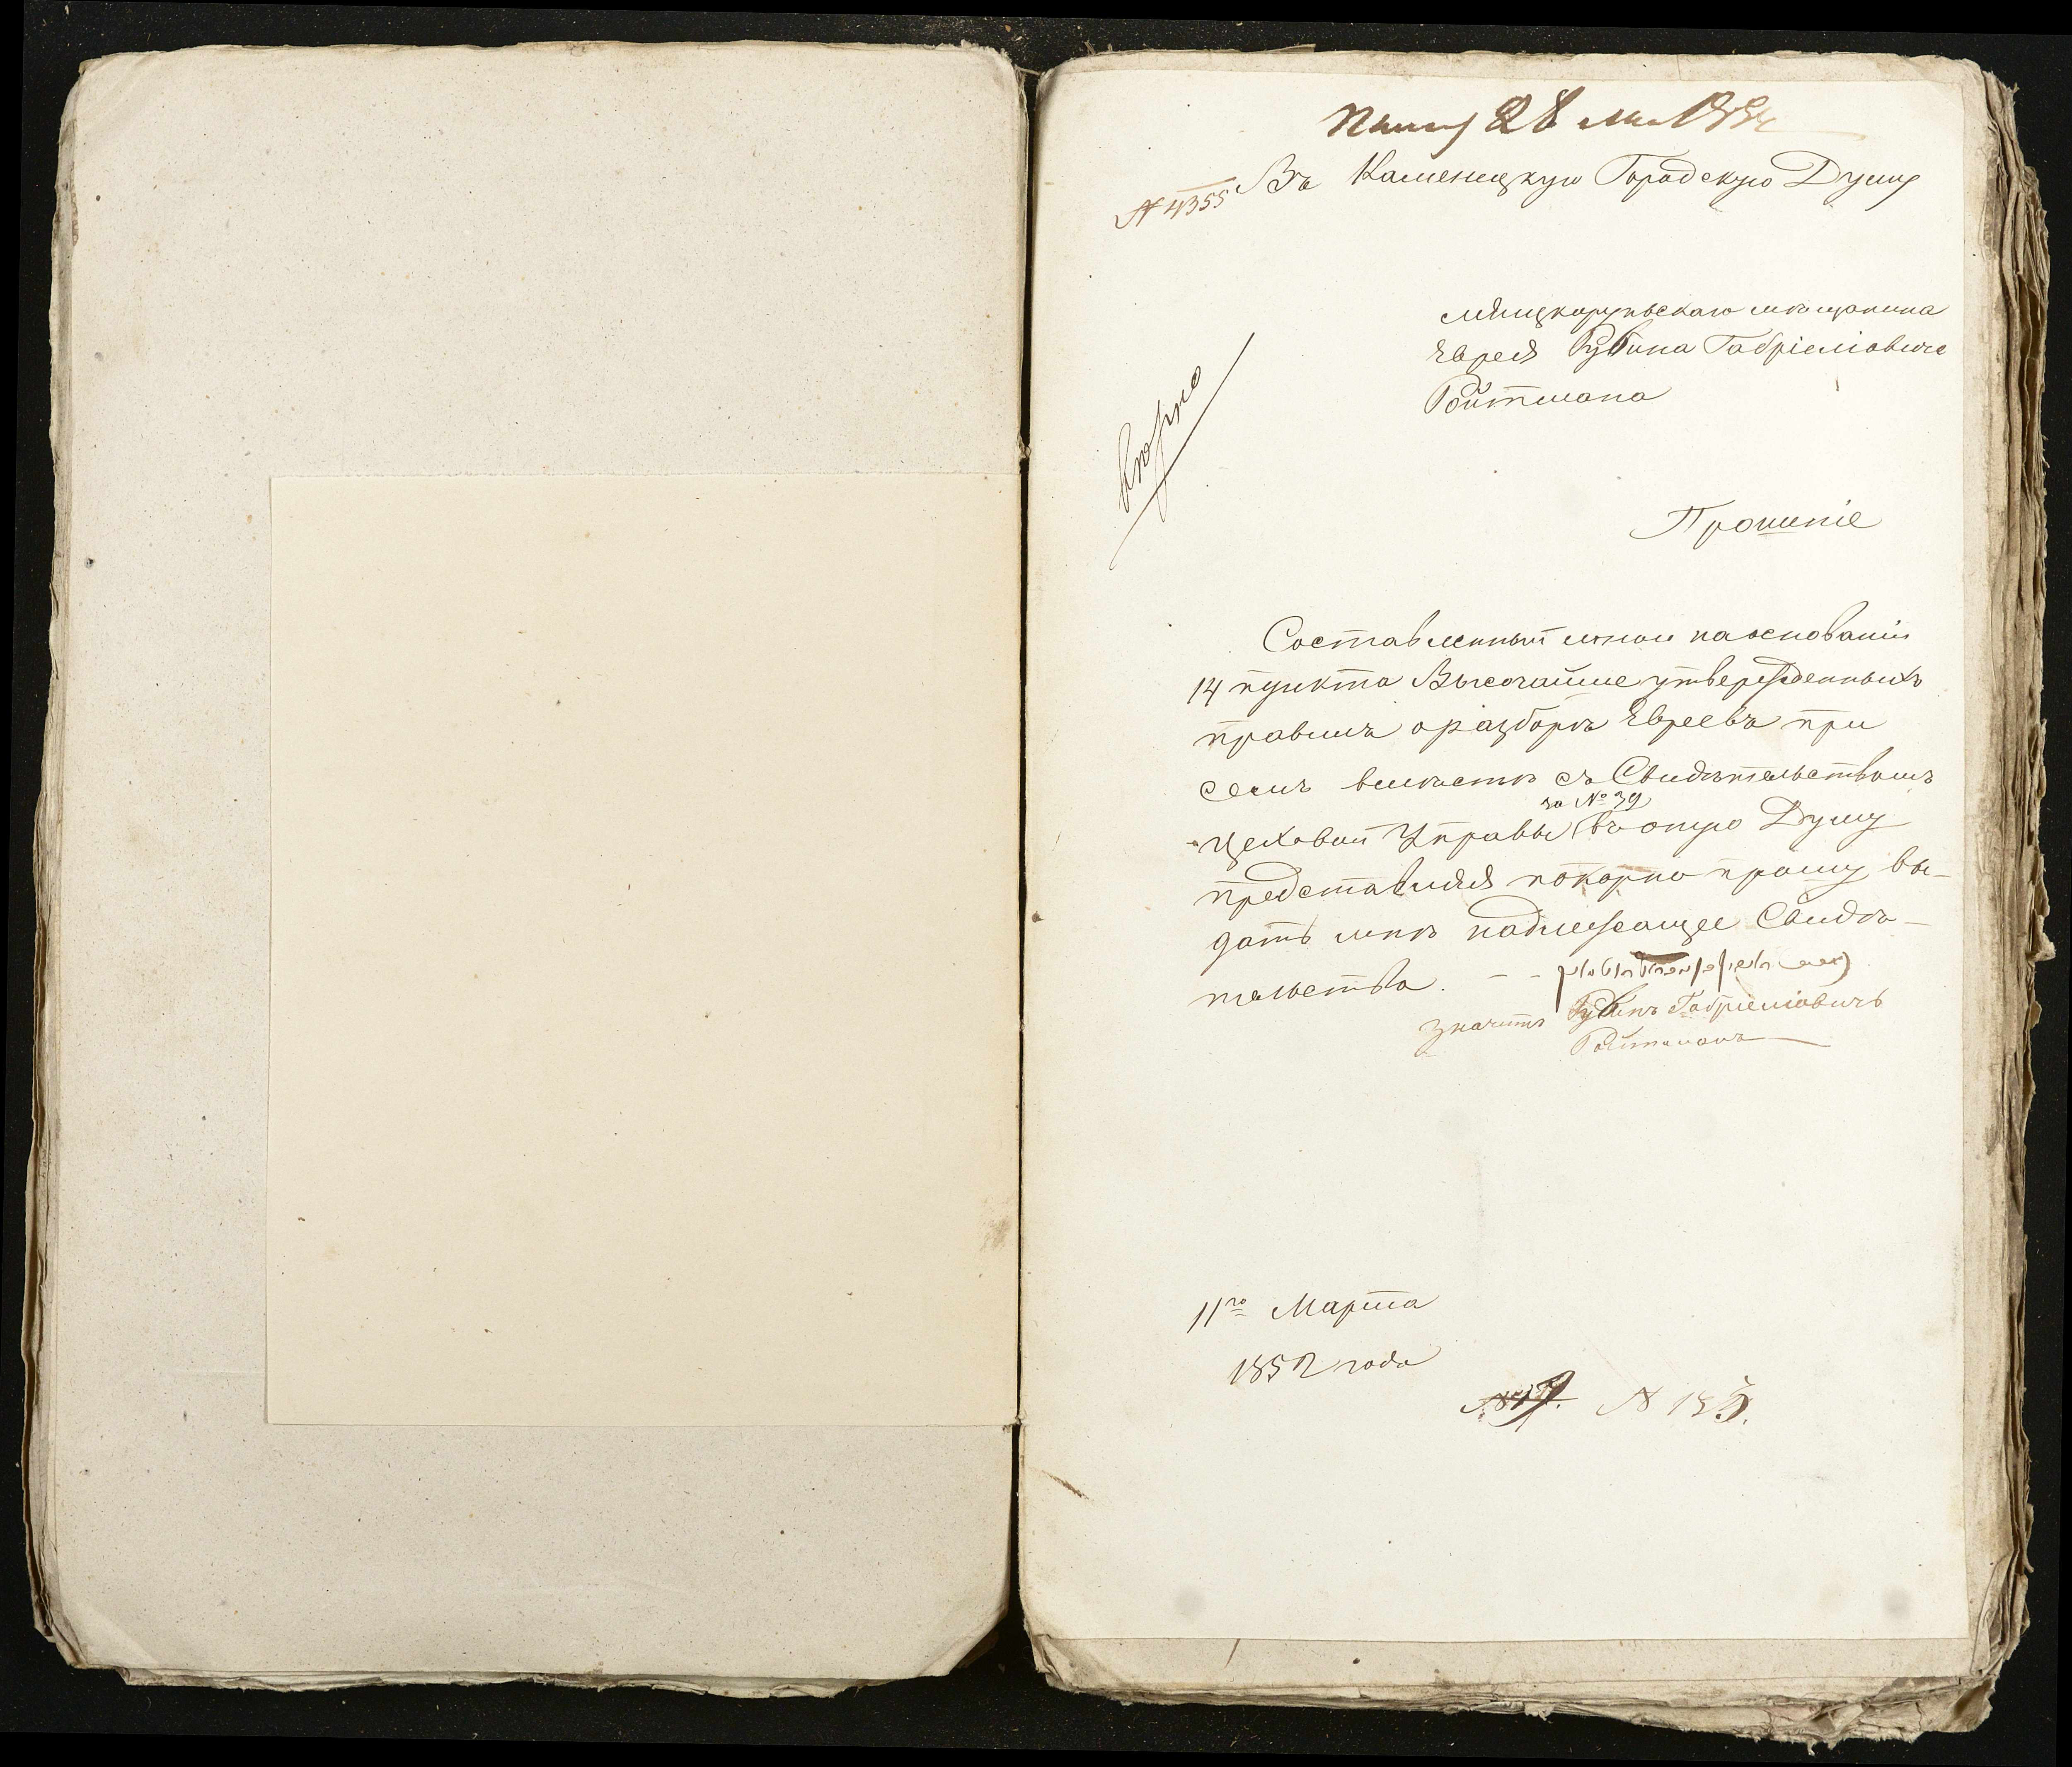 28 1852
№ 4355
Въ Каменецкую Городскую Думу
мѣщанина
Еврея Рувина Габріеліовича
Ройтмана
Прошеніе
Составленный мною на основаніи
14 пункта Высочайше утвержденныхъ
правилъ о разборѣ Евреевъ при
семъ вмѣстѣ съ Свидѣтельствомъ
за № 39
Цеховой Управы въ оную Думу
представляя покорно прошу вы-
дать мнѣ надлежащее Свидѣ-
тельство.
значитъ Рувинъ Габріеліовичъ
Ройтманъ
11го Марта
1852 года
№ 135.